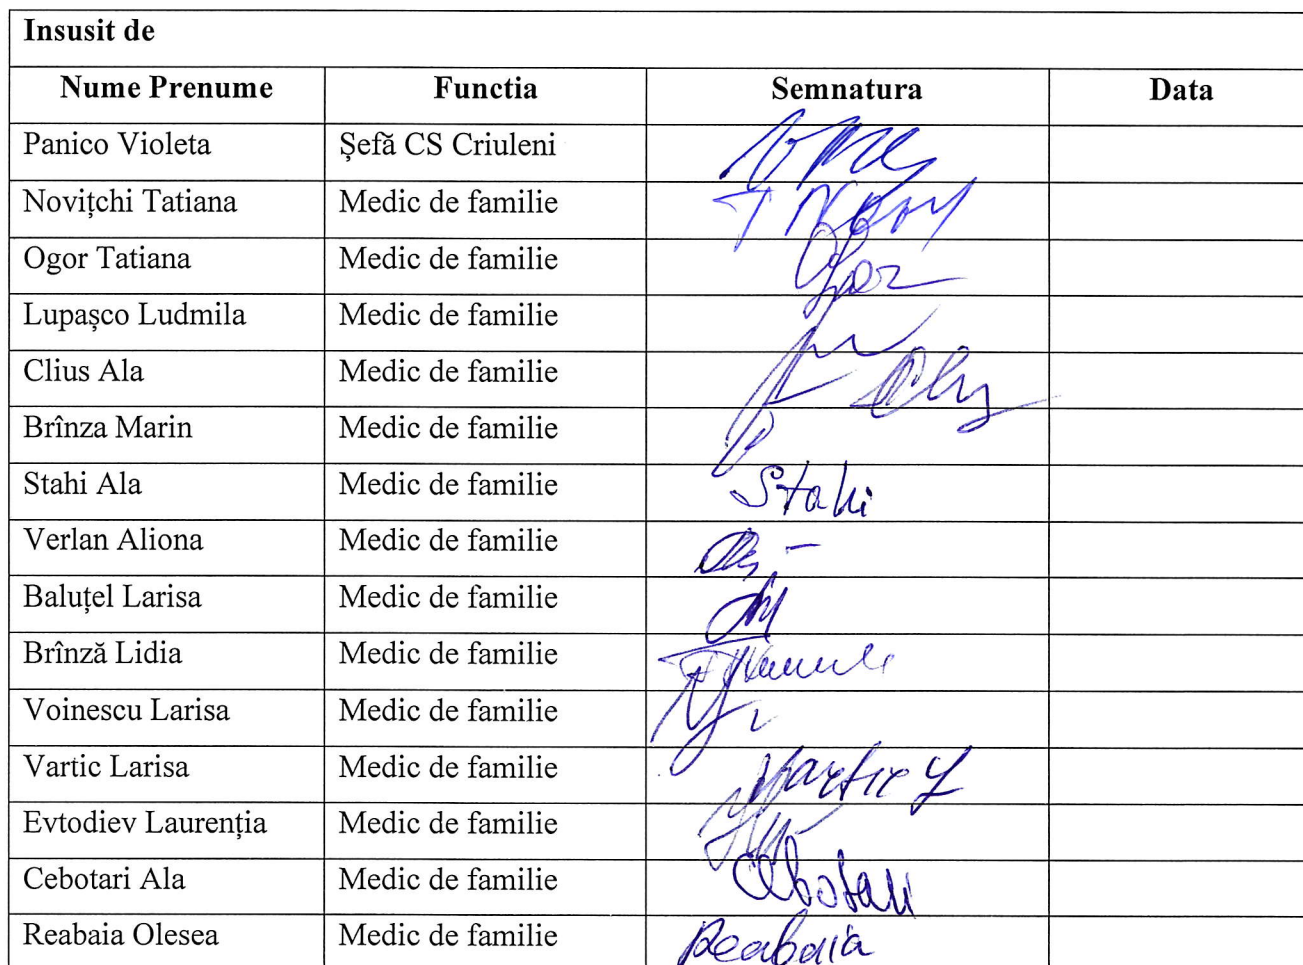 Insusit de
Nume Prenume Functia Semnatura Data
Panico Violeta Șefă CS Criuleni
Novițchi Tatiana Medic de familie
Ogor Tatiana Medic de familie
Lupașco Ludmila Medic de familie
Clius Ala Medic de familie
Brînza Marin Medic de familie
Stahi Ala Medic de familie Stahi
Verlan Aliona Medic de familie
Baluțel Larisa Medic de familie
Brînză Lidia Medic de familie
Voinescu Larisa Medic de familie
Vartic Larisa Medic de familie Vartic
Evtodiev Laurenția Medic de familie
Cebotari Ala Medic de familie Cebotari
Reabaia Olesea Medic de familie Reabaia